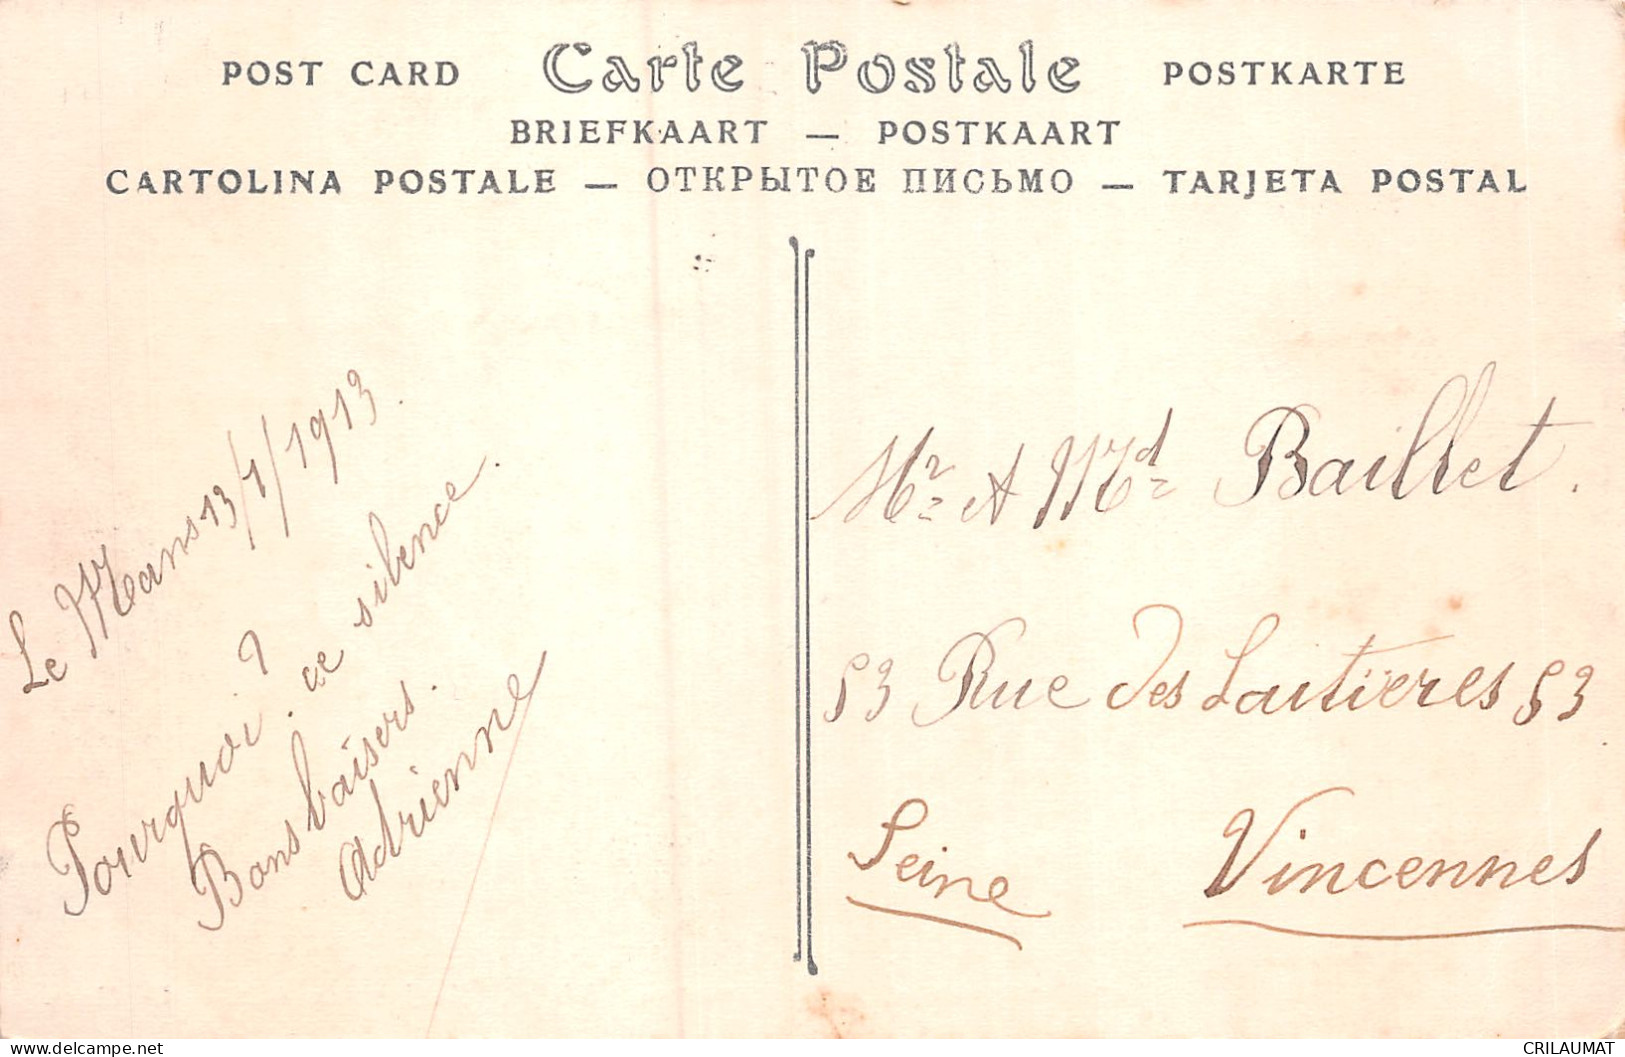 POST CARD Carte Postale POSTKARTE
BRIEFKAART — POSTKAART
CARTOLINA POSTALE — ОТКРЫТОЕ ПИСЬМО — TARJETA POSTAL
Le Mans 13/1/1913.
Pourquoi? ce silence.
Bons baisers.
Adrienne
Mr A Md Baillet.
53 Rue des Laitières 53
Seine Vincennes
delcampe.net
CRILAUMAT